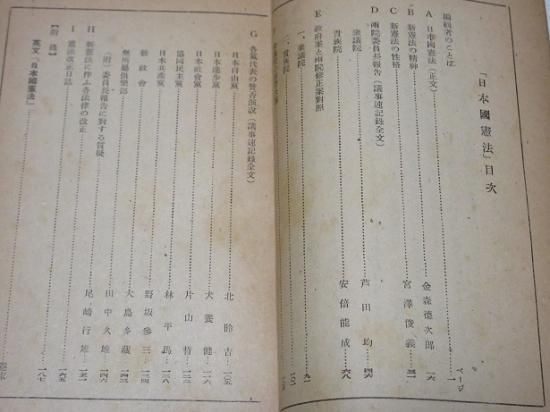 「日本國憲法」目次
ページ
編纂者のことば
A 日本國憲法（正文）
B 新憲法の精神 金森德次郎
C 新憲法の性格 宮澤俊義
D 兩院委員長報告（議事速記録全文）
衆議院 芦田均
貴族院 安倍能成 六八
E 政府案と兩院修正案對照
一、衆議院 九一
二、貴族院
G 各黨代表の賛否演説（議事速記録全文）
日本自由黨 北昤吉 一〇五
日本進步黨 犬養健
日本社會黨 片山哲
協同民主黨 林平馬
日本共產黨 野坂參三
新政會 大島多藏
無所屬俱樂部 田中久雄
（附）委員長報告に對する質疑 尾崎行雄
H 新憲法に伴ふ各法律の改正
I 憲法改正日誌 一六五
〔附錄〕
英文「日本國憲法」 一八七